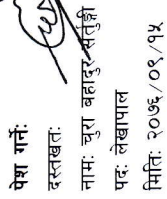 पेश गर्ने:
दस्तखत:
नाम: चुरा बहादुर सतुङ्गी
पद: लेखापाल
मिति: २०७६/०९/१५